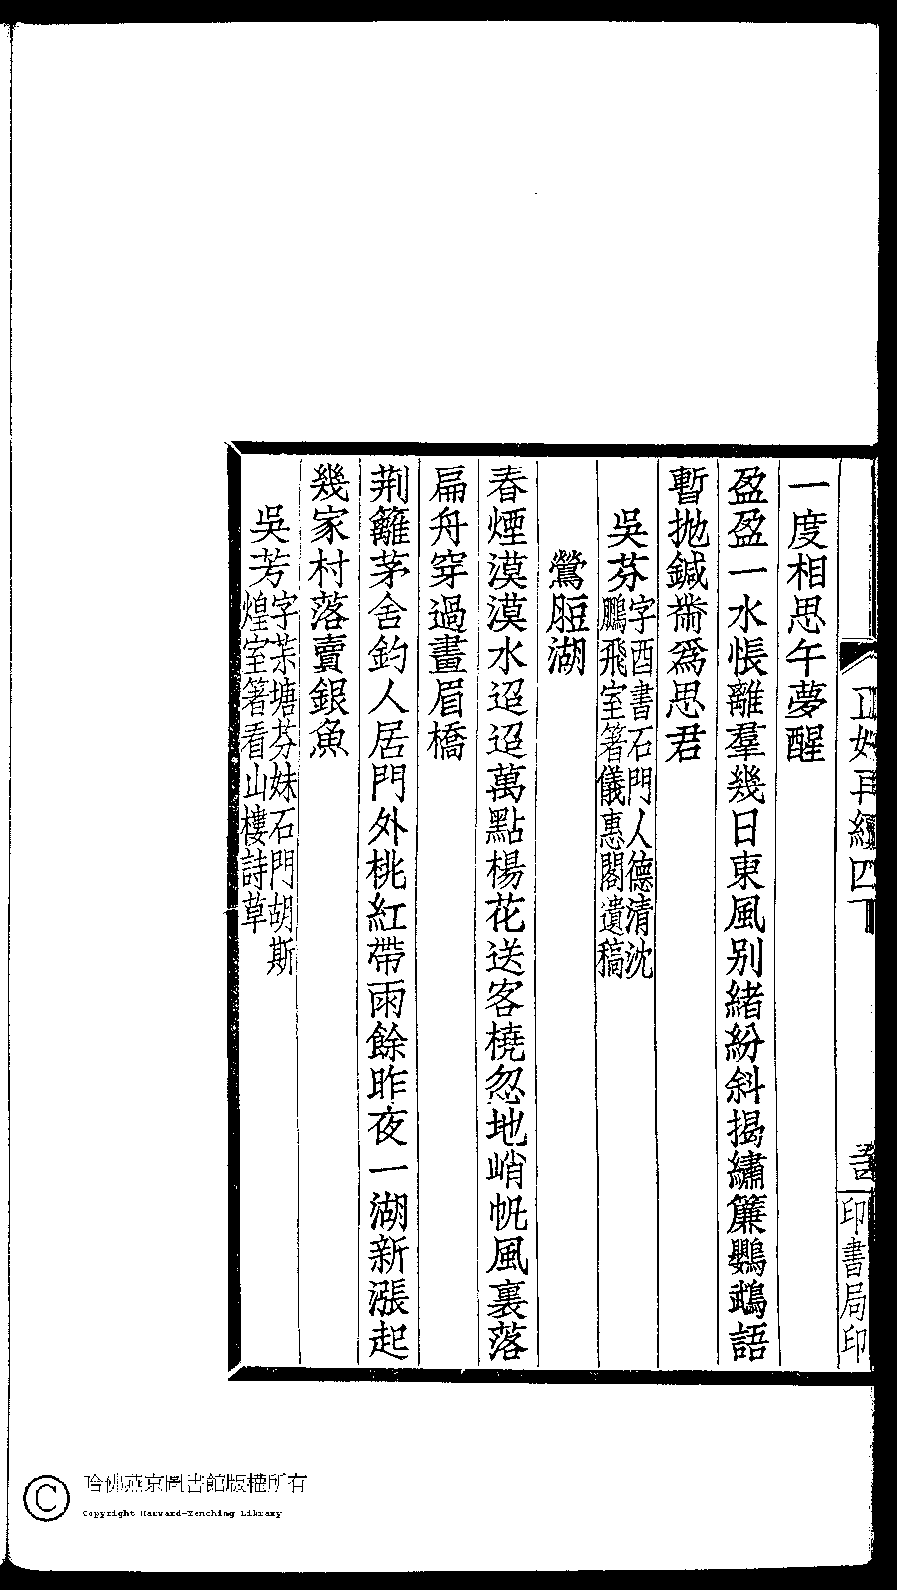 正始再續四下
印書局印
一度相思午夢醒
盈盈一水悵離羣幾日東風別緒紛斜揭繡簾鸚鵡語
暫拋鍼黹爲思君
吳芬字酉書石門人德清沈
鵬飛室箸儀惠閣遺稿
鶯脰湖
春煙漠漠水迢迢萬點楊花送客橈忽地峭帆風裏落
扁舟穿過畫眉橋
荆籬茅舍釣人居門外桃紅帶雨餘昨夜一湖新漲起
幾家村落賣銀魚
吳芳字茮塘芬妹石門胡斯
煌室箸看山樓詩草
哈佛燕京圖書館版權所有
Copyright Harvard-Yenching Library